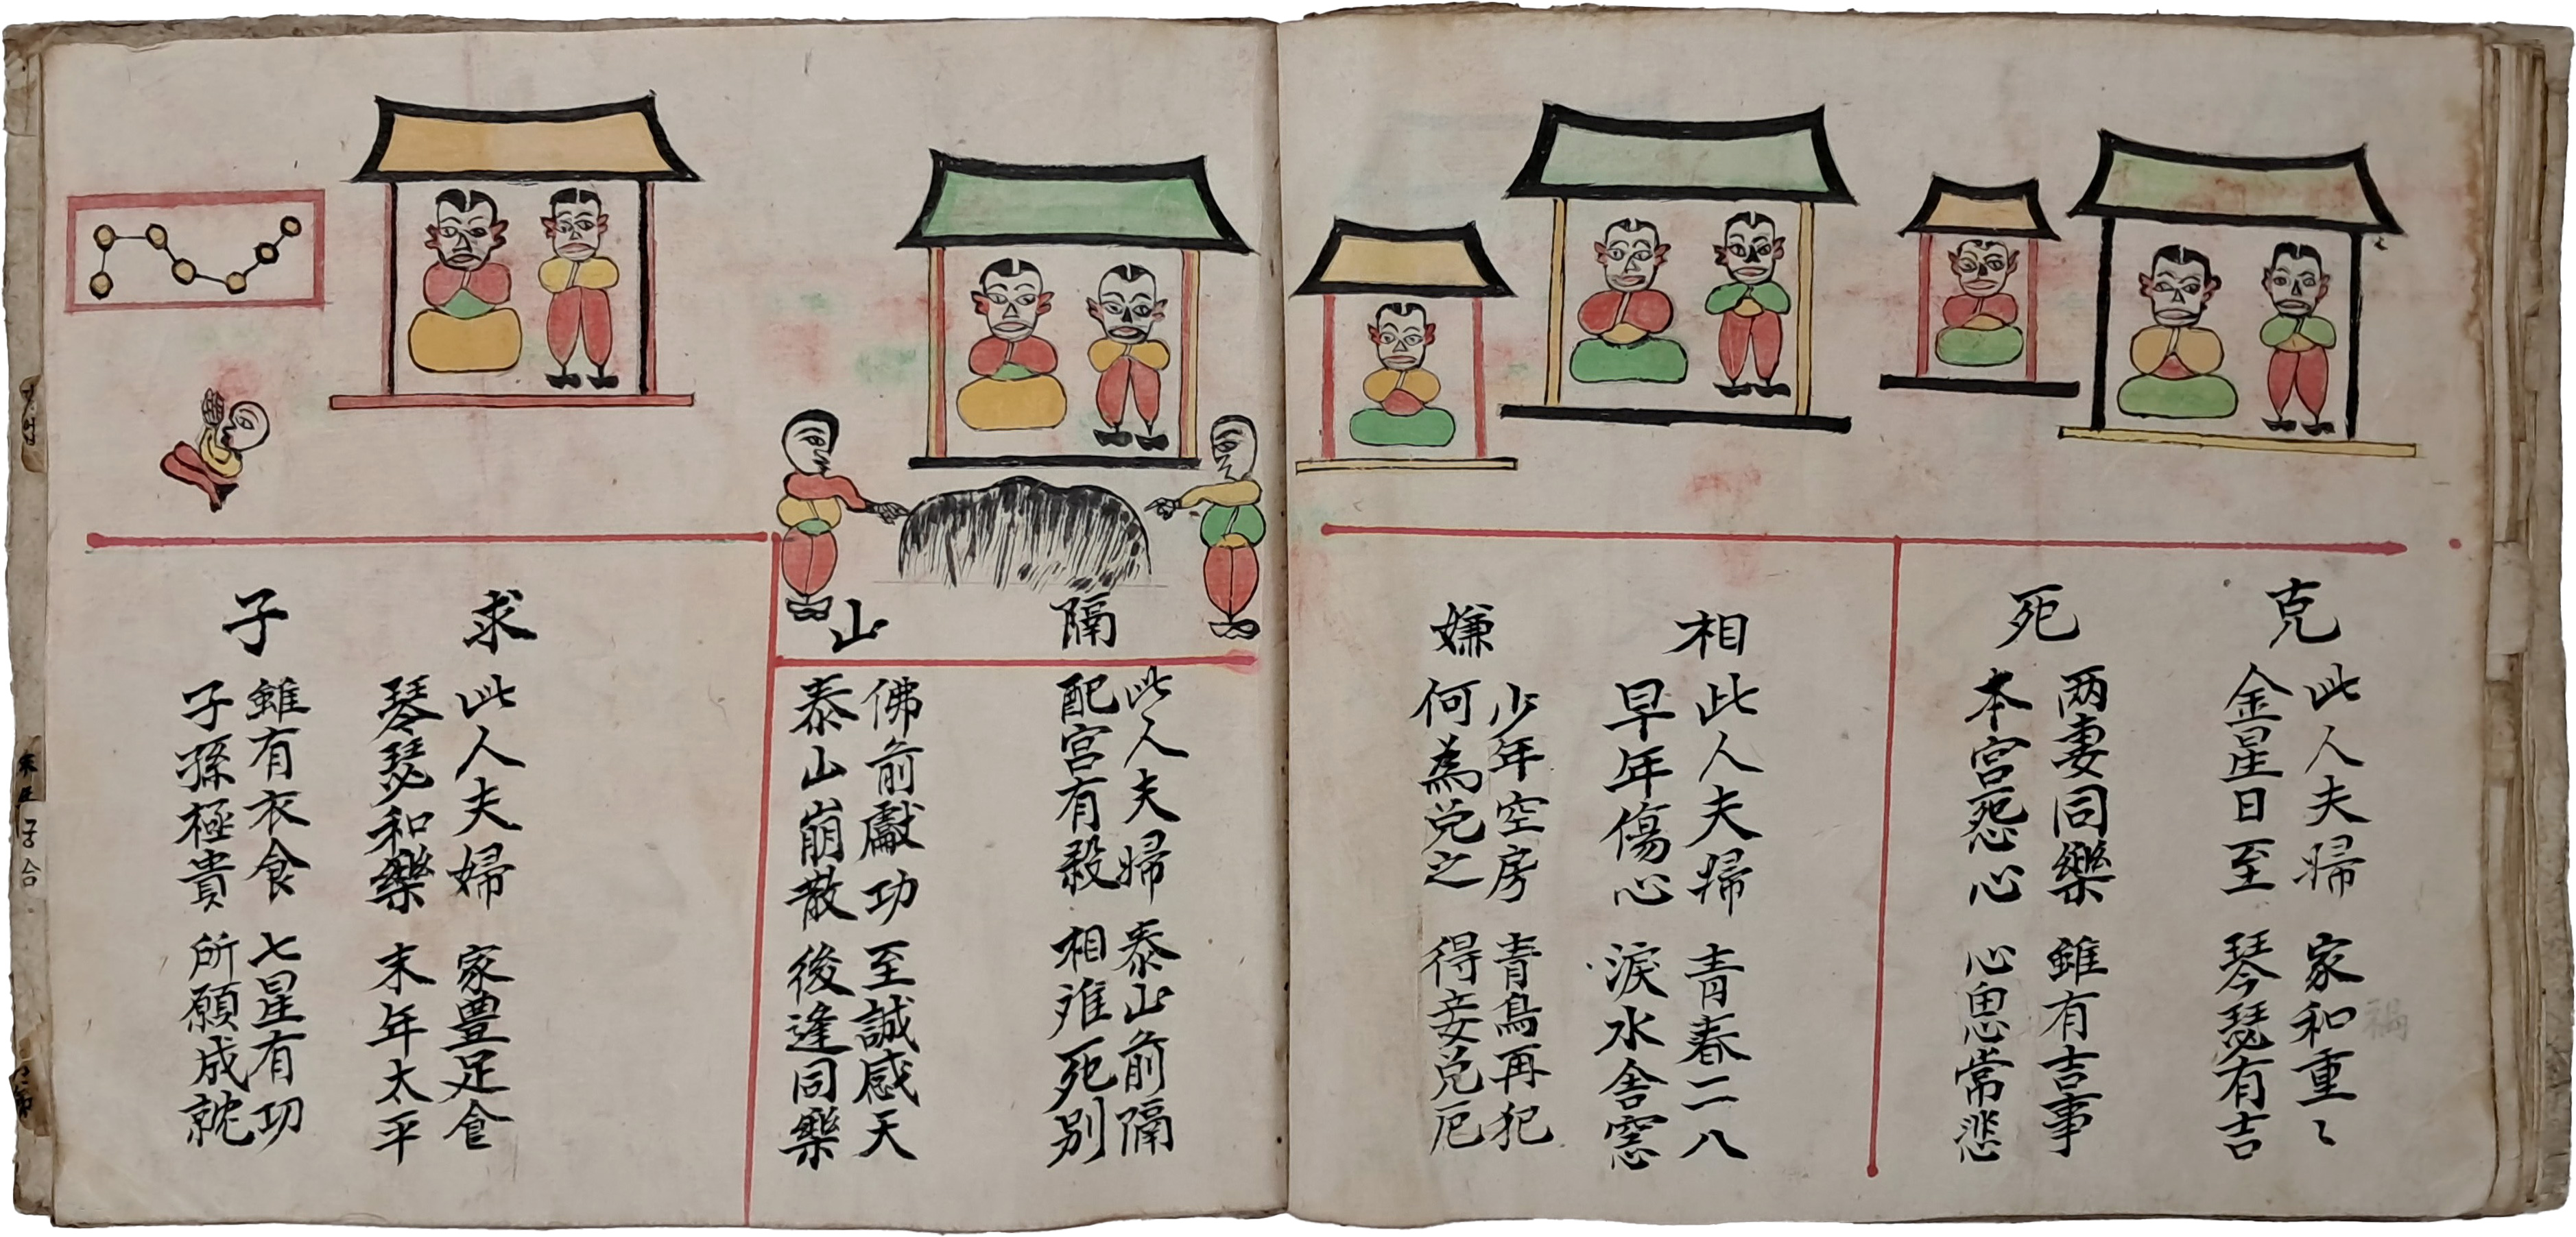 克死
此人夫婦 家和重〻
金星日至 琴瑟有吉
两妻同樂 雖有吉事
本宮怨心 心思常悲
相嫌
此人夫婦 青春二八
早年傷心 淚水舎窓
少年空房 青鳥再犯
何為免之 得妾免厄
隔山
此人夫婦 泰山前隔
配宮有殺 相难死别
佛前獻功 至誠感天
泰山崩散 後逢同樂
求子
此人夫婦 家豊足食
琴瑟和樂 末年太平
雖有衣食 七星有功
子孫極貴 所願成就